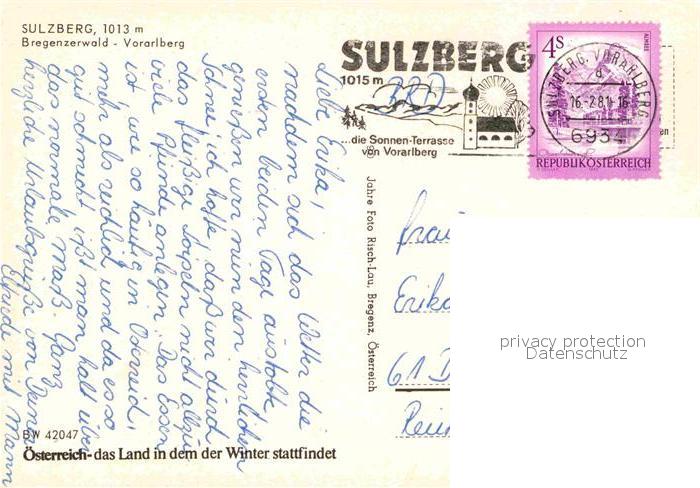 SULZBERG, 1013 m
Bregenzerwald - Vorarlberg
SULZBERG
1015 m
...die Sonnen-Terrasse
von Vorarlberg
SULZBERG, VORARLBERG
16.-2.81-16
6934
4S
ALMSEE
REPUBLIK ÖSTERREICH
Liebe Erika!
nachdem sich das Wetter die
ersten beiden Tage austobte
genießen wir nun den herrlichen
Schnee. Ich hoffe, daß wir durch
das fleißige Loipeln nicht allzu
viele Pfunde anlegen. Das Essen
ist wie so häufig in Österreich,
mehr als reichlich und da es so
gut schmeckt ißt man halt über
das normale Maß. Ganz
herzliche Urlaubsgrüße von Deiner
Elfriede mit Mann
Jahre Foto Risch-Lau, Bregenz, Österreich
Frau
Erika
61 D
BW 42047
Österreich-das Land in dem der Winter stattfindet
privacy protection
Datenschutz